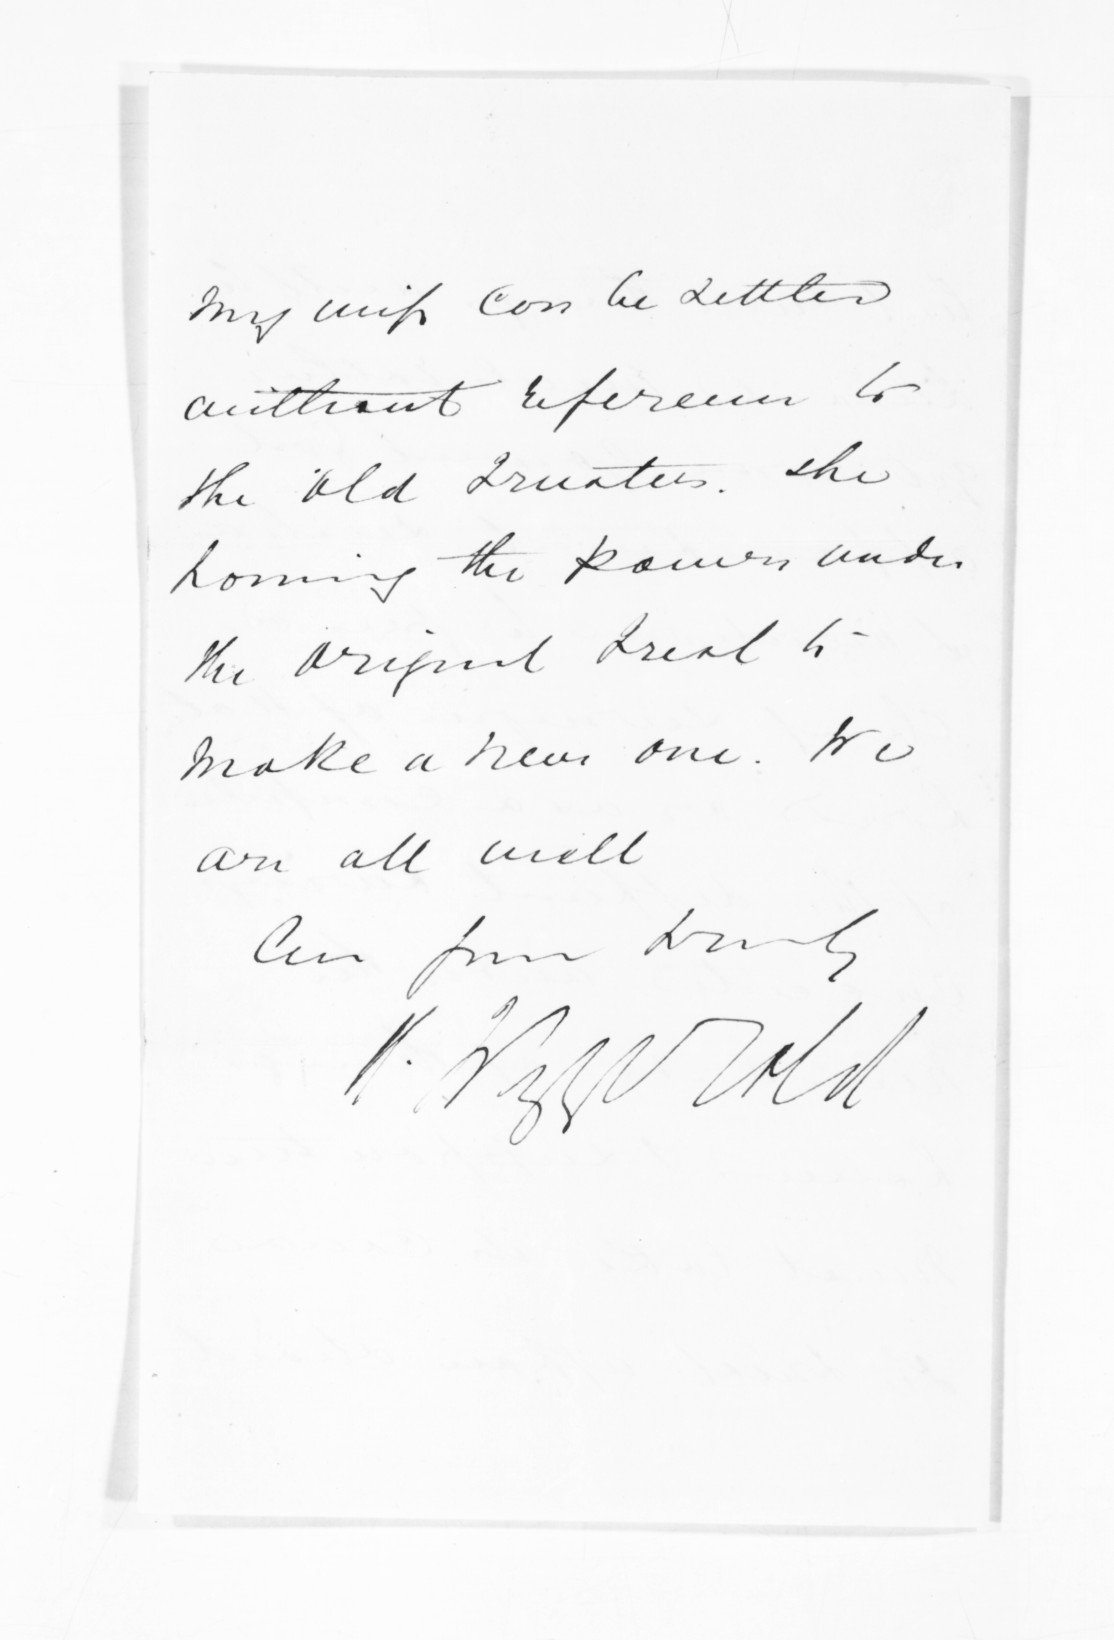 My wife can be settled
without reference to
the old Trustees. She
having the powers under
the original Trust to
make a new one. We
are all well
Ever yours sincerely